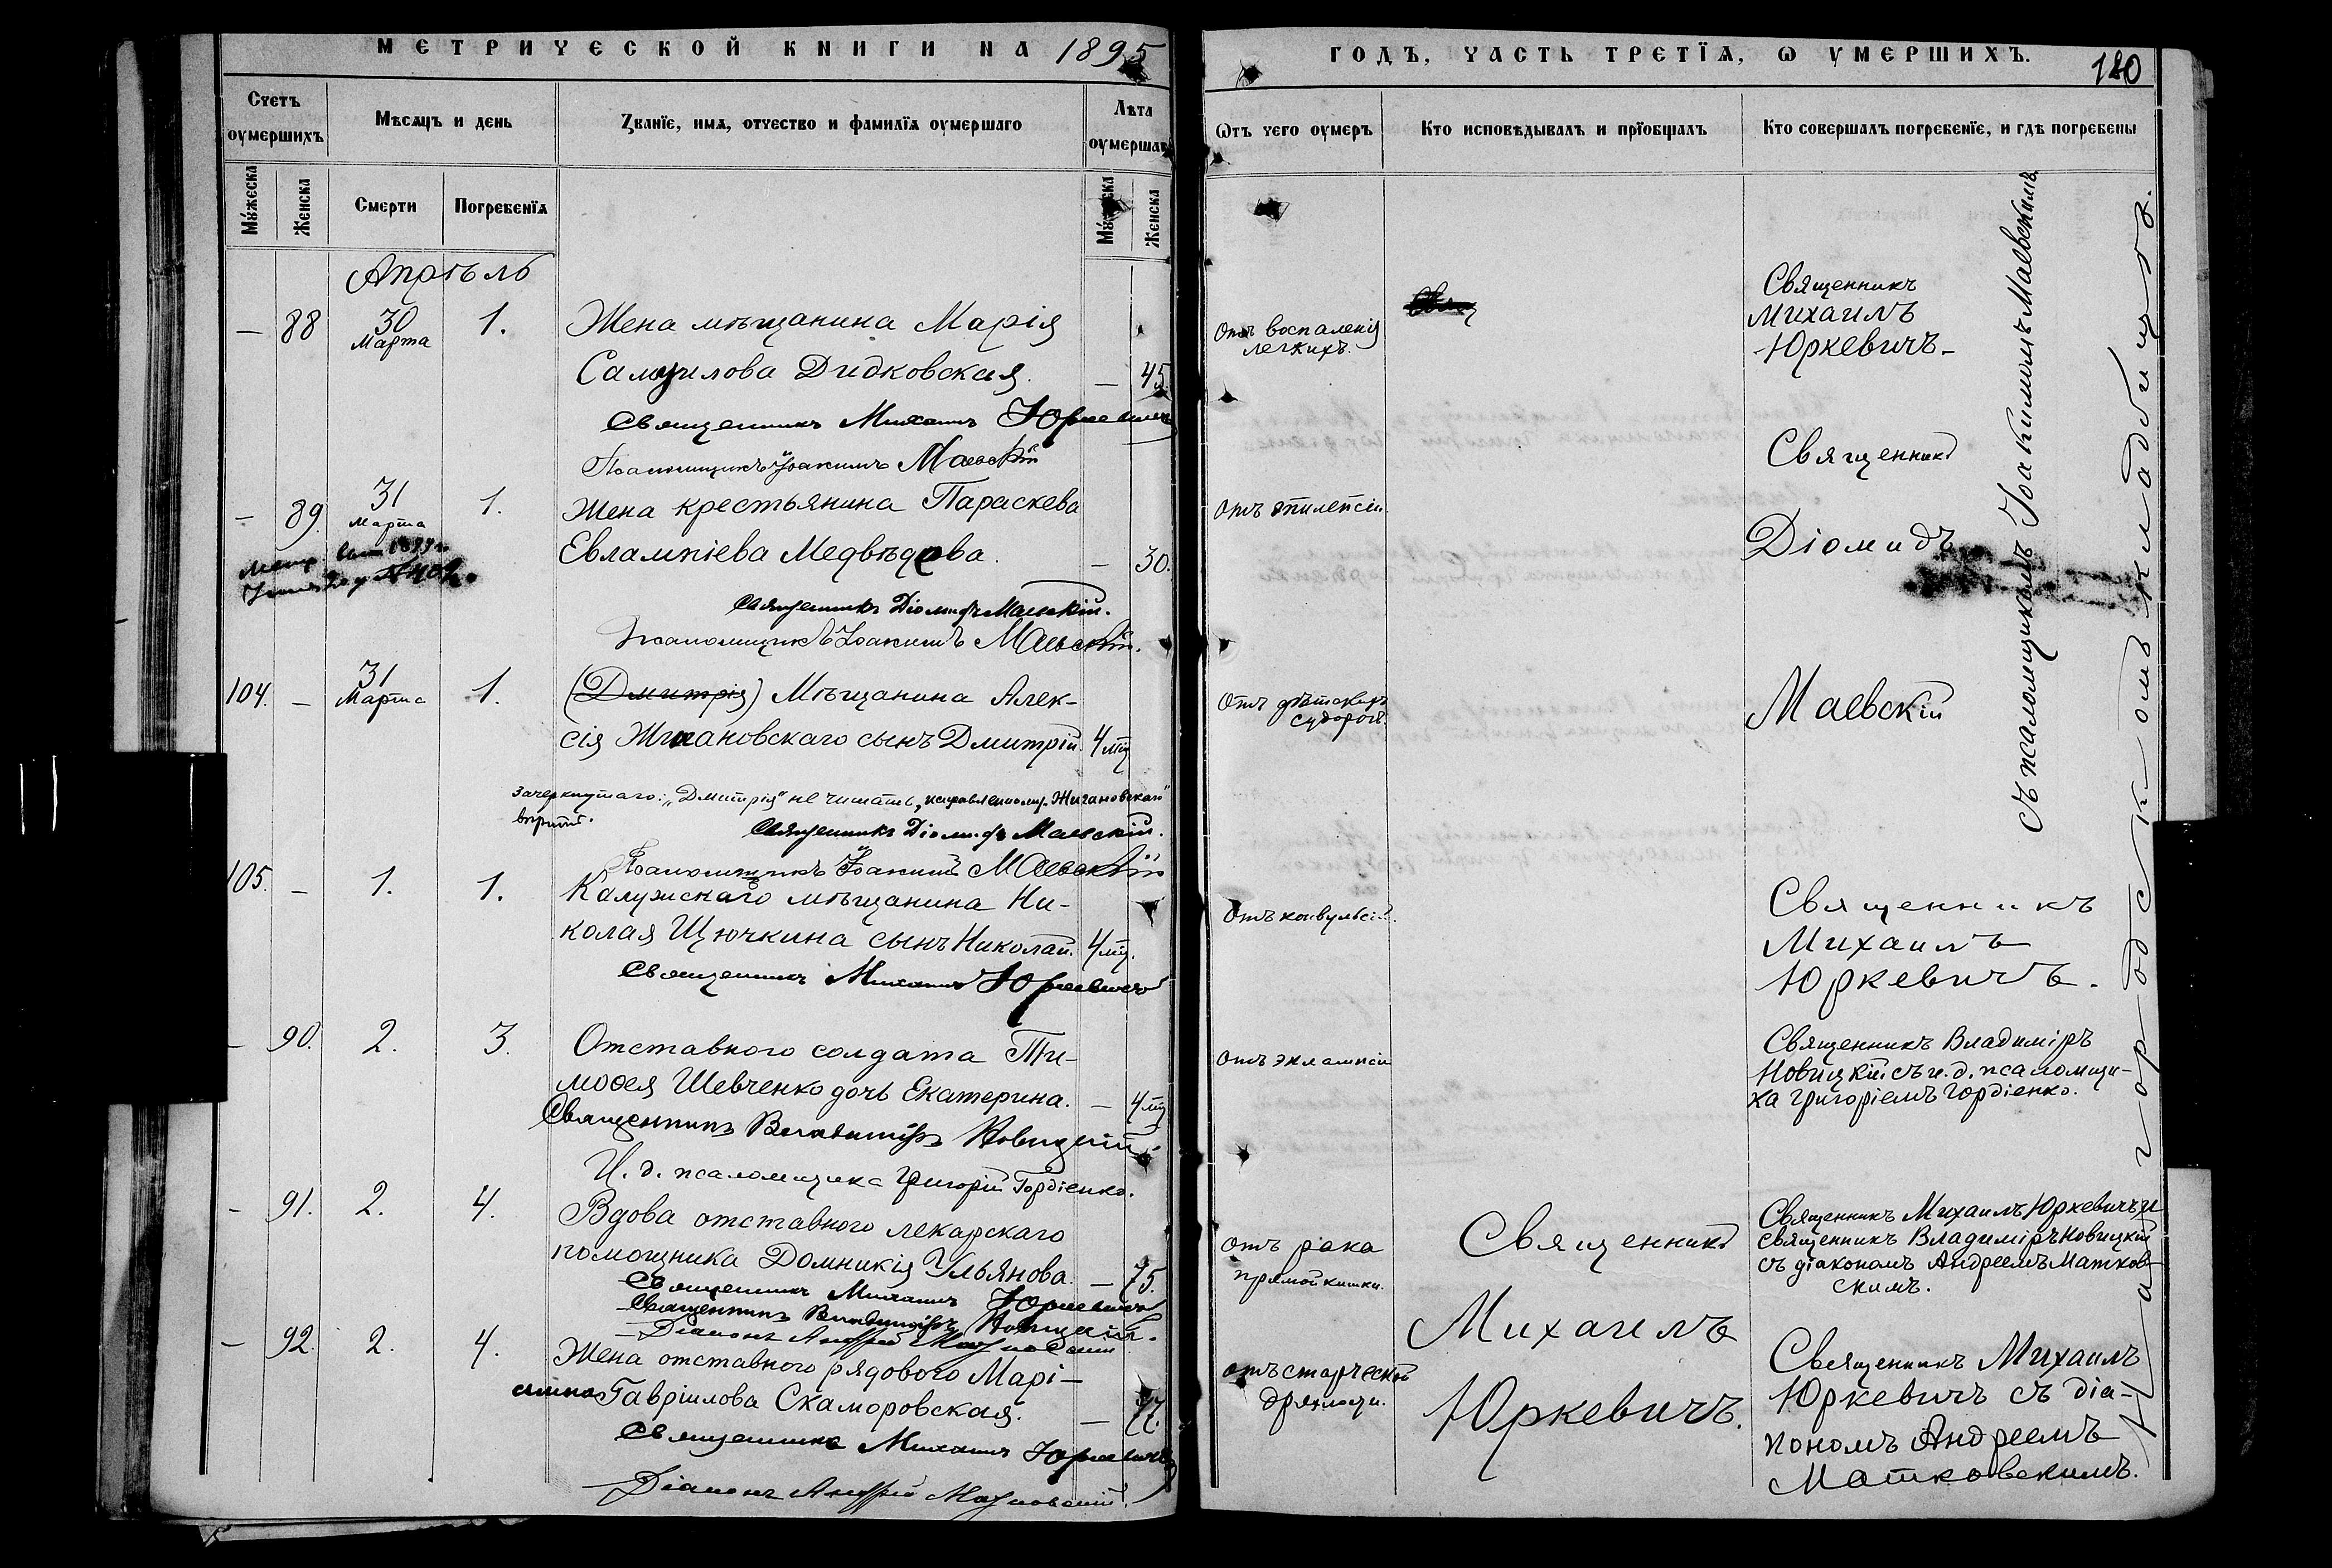 МЕТРИЧЕСКОЙ КНИГИ НА 1895
Счетъ оумершихъ
Мѣсяцъ и день
Званїе, имя, отчество и фамилїя оумершаго
Лѣта оумершаго
Мужеска
Женска
Смерти
Погребенїя
Мужеска
Женска
Апрѣль
— 88 30 Марта 1. Жена мѣщанина Марія
Самуилова Дидковская. — 45.
Священникъ Михаилъ Юркевичъ
Псаломщикъ Іоакимъ Маевскій
— 89. 31 Марта 1. Жена крестьянина Параскева
Евлампіева Медвѣдева. — 30.
Священникъ Діомидъ Маевскій.
Псаломщикъ Іоакимъ Маевскій.
104. — 31 Марта 1. (Дмитрія) Мѣщанина Алек-
сія Жигановскаго сынъ Дмитрій. 4 мц
Зачеркнутаго: „Дмитрія" не читать, исправленному „Жигановскаго"
вѣрить.
Священникъ Діомидъ Маевскій.
Псаломщикъ Іоакимъ Маевскій
105. — 1. 1. Калужскаго мѣщанина Ни-
колая Щючкина сынъ Николай. 4 мц.
Священникъ Михаилъ Юркевичъ
— 90. 2. 3. Отставного солдата Ти-
моѳея Шевченко дочь Екатерина. — 4 мц
Священникъ Владиміръ Новицкій.
И. д. псаломщика Григорій Гордіенко.
— 91. 2. 4. Вдова отставного лекарскаго
помощника Домникія Ульянова. — 75.
Священникъ Михаилъ Юркевичъ
Священникъ Владиміръ Новицкій.
Діаконъ Андрей Матковскій
— 92. 2. 4. Жена отставного рядового Марі-
амна Гавріилова Скаморовская. — 77.
Священникъ Михаилъ Юркевичъ
Діаконъ Андрей Матковскій.
ГОДЪ, ЧАСТЬ ТРЕТЇЯ, Ѡ УМЕРШИХЪ.
180
Ѡтъ чего оумеръ
Кто исповѣдывалъ и прїобщалъ
Кто совершалъ погребенїе, и гдѣ погребены
Отъ воспаленія
легкихъ.
Свящ
Священникъ
Михаилъ
Юркевичъ —
Отъ эпилепсіи.
Священникъ
Діомидъ
Отъ дѣтскихъ
судорогъ.
Маевскій
съ псаломщикомъ Іоакимомъ Маевскимъ.
Отъ конвульсій.
Священникъ
Михаилъ
Юркевичъ.
Отъ эклампсіи
Священникъ Владиміръ
Новицкій съ и. д. псаломщи-
ка Григоріемъ Гордіенко.
Отъ рака
прямой кишки.
Священникъ
Михаилъ
Юркевичъ.
Священникъ Михаилъ Юркевичъ и
священникъ Владиміръ Новицкій
съ діакономъ Андреемъ Матков-
скимъ.
Отъ старческой
дряхлости.
Священникъ Михаилъ
Юркевичъ съ діа-
кономъ Андреемъ
Матковскимъ.
На городскомъ кладбищѣ.